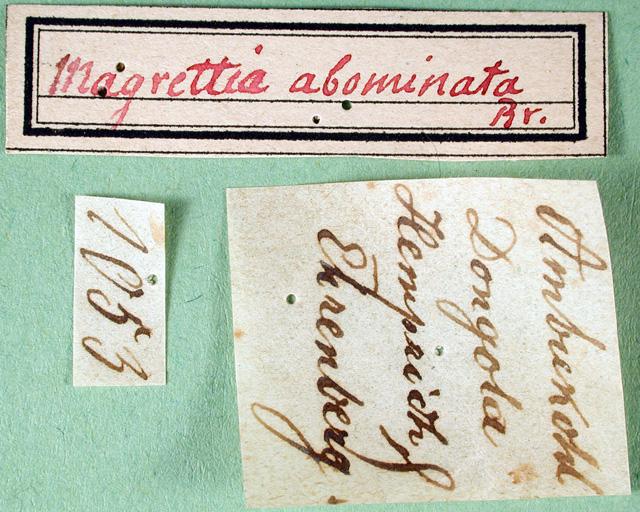 Magrettia abominata
Br.
1053
Ambukohl
Dongola
Hemprich
Ehrenberg.